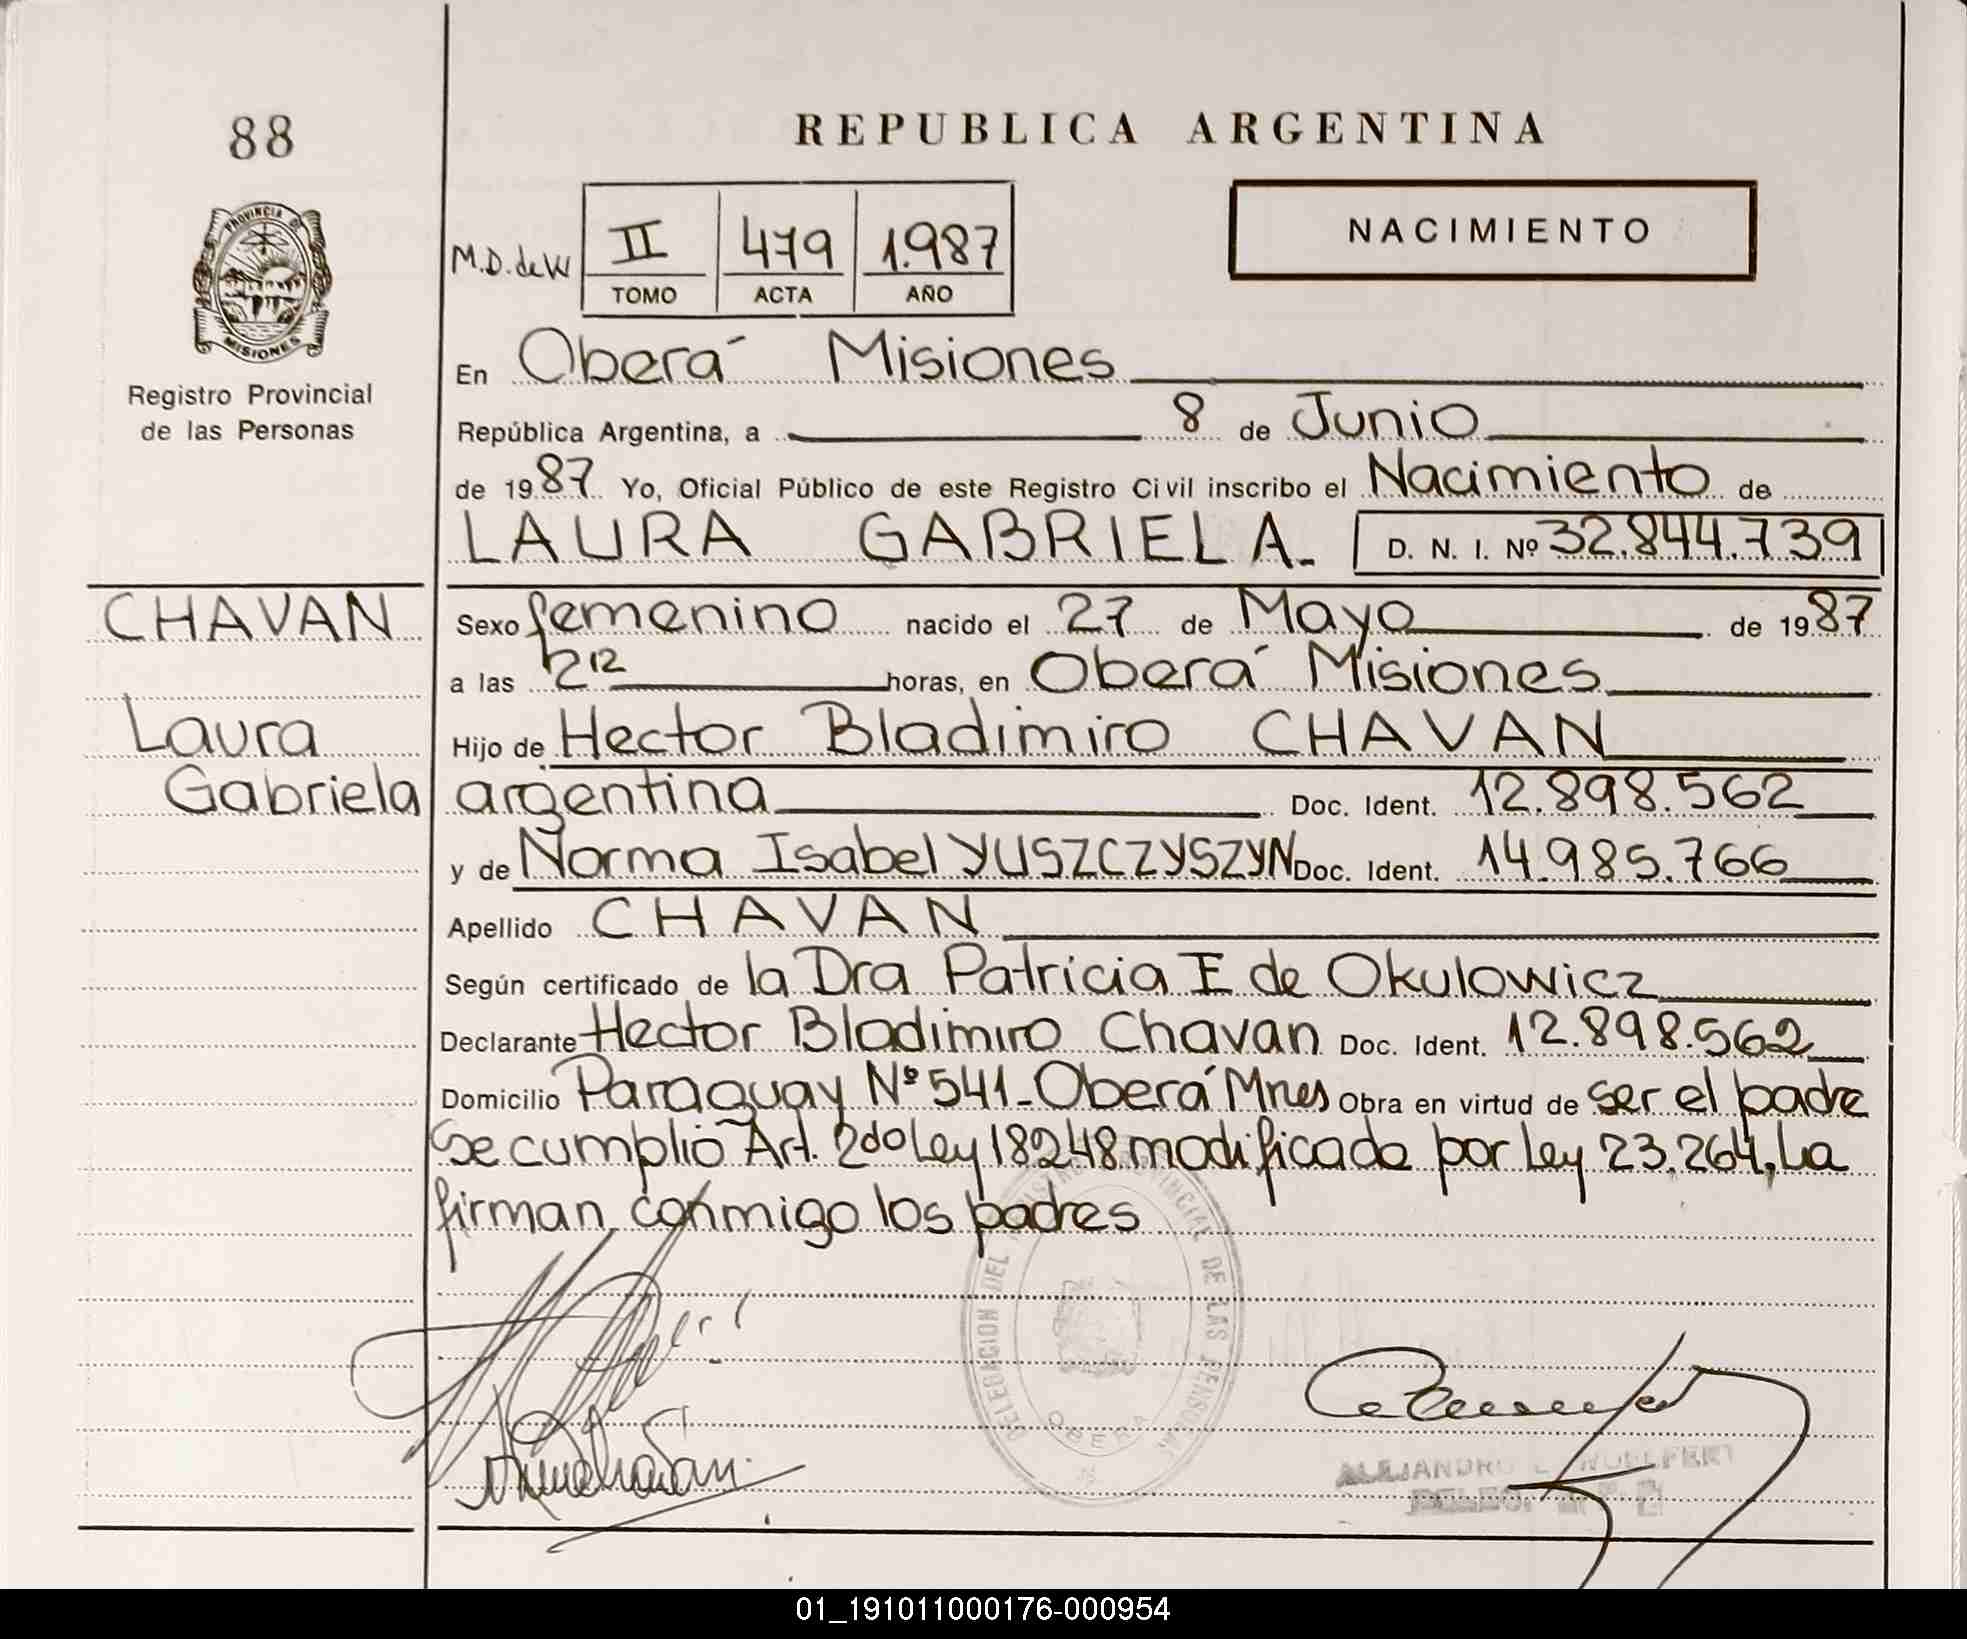 88
REPUBLICA ARGENTINA
PROVINCIA DE
MISIONES
Registro Provincial
de las Personas
M.D. de W
II 479 1.987
TOMO ACTA AÑO
NACIMIENTO
En Oberá Misiones
República Argentina, a 8 de Junio
de 1987 Yo, Oficial Público de este Registro Civil inscribo el Nacimiento de
LAURA GABRIELA. D. N. I. Nº 32.844.739
CHAVAN
Laura
Gabriela
Sexo femenino nacido el 27 de Mayo de 1987
a las 2¹² horas, en Oberá Misiones
Hijo de Hector Bladimiro CHAVAN
argentina Doc. Ident. 12.898.562
y de Norma Isabel YUSZCZYSZYN Doc. Ident. 14.985.766
Apellido CHAVAN
Según certificado de la Dra Patricia E de Okulowicz
Declarante Hector Bladimiro Chavan Doc. Ident. 12.898.562
Domicilio Paraguay Nº 541_Oberá Mnes Obra en virtud de ser el padre
Se cumplió Art. 2do Ley 18248 modificada por Ley 23.264, La
firman conmigo los padres
DELEGACION DEL REGISTRO PROVINCIAL DE LAS PERSONAS
OBERA
ALEJANDRO
01_191011000176-000954